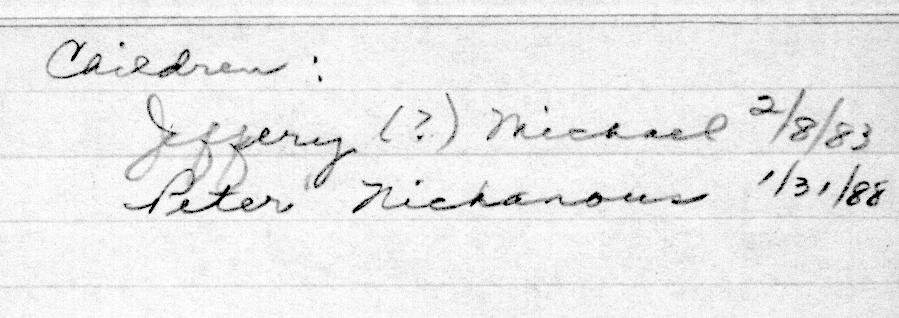 Children:
Jeffery (?) Michael 2/8/83
Peter Nickanous 1/31/88